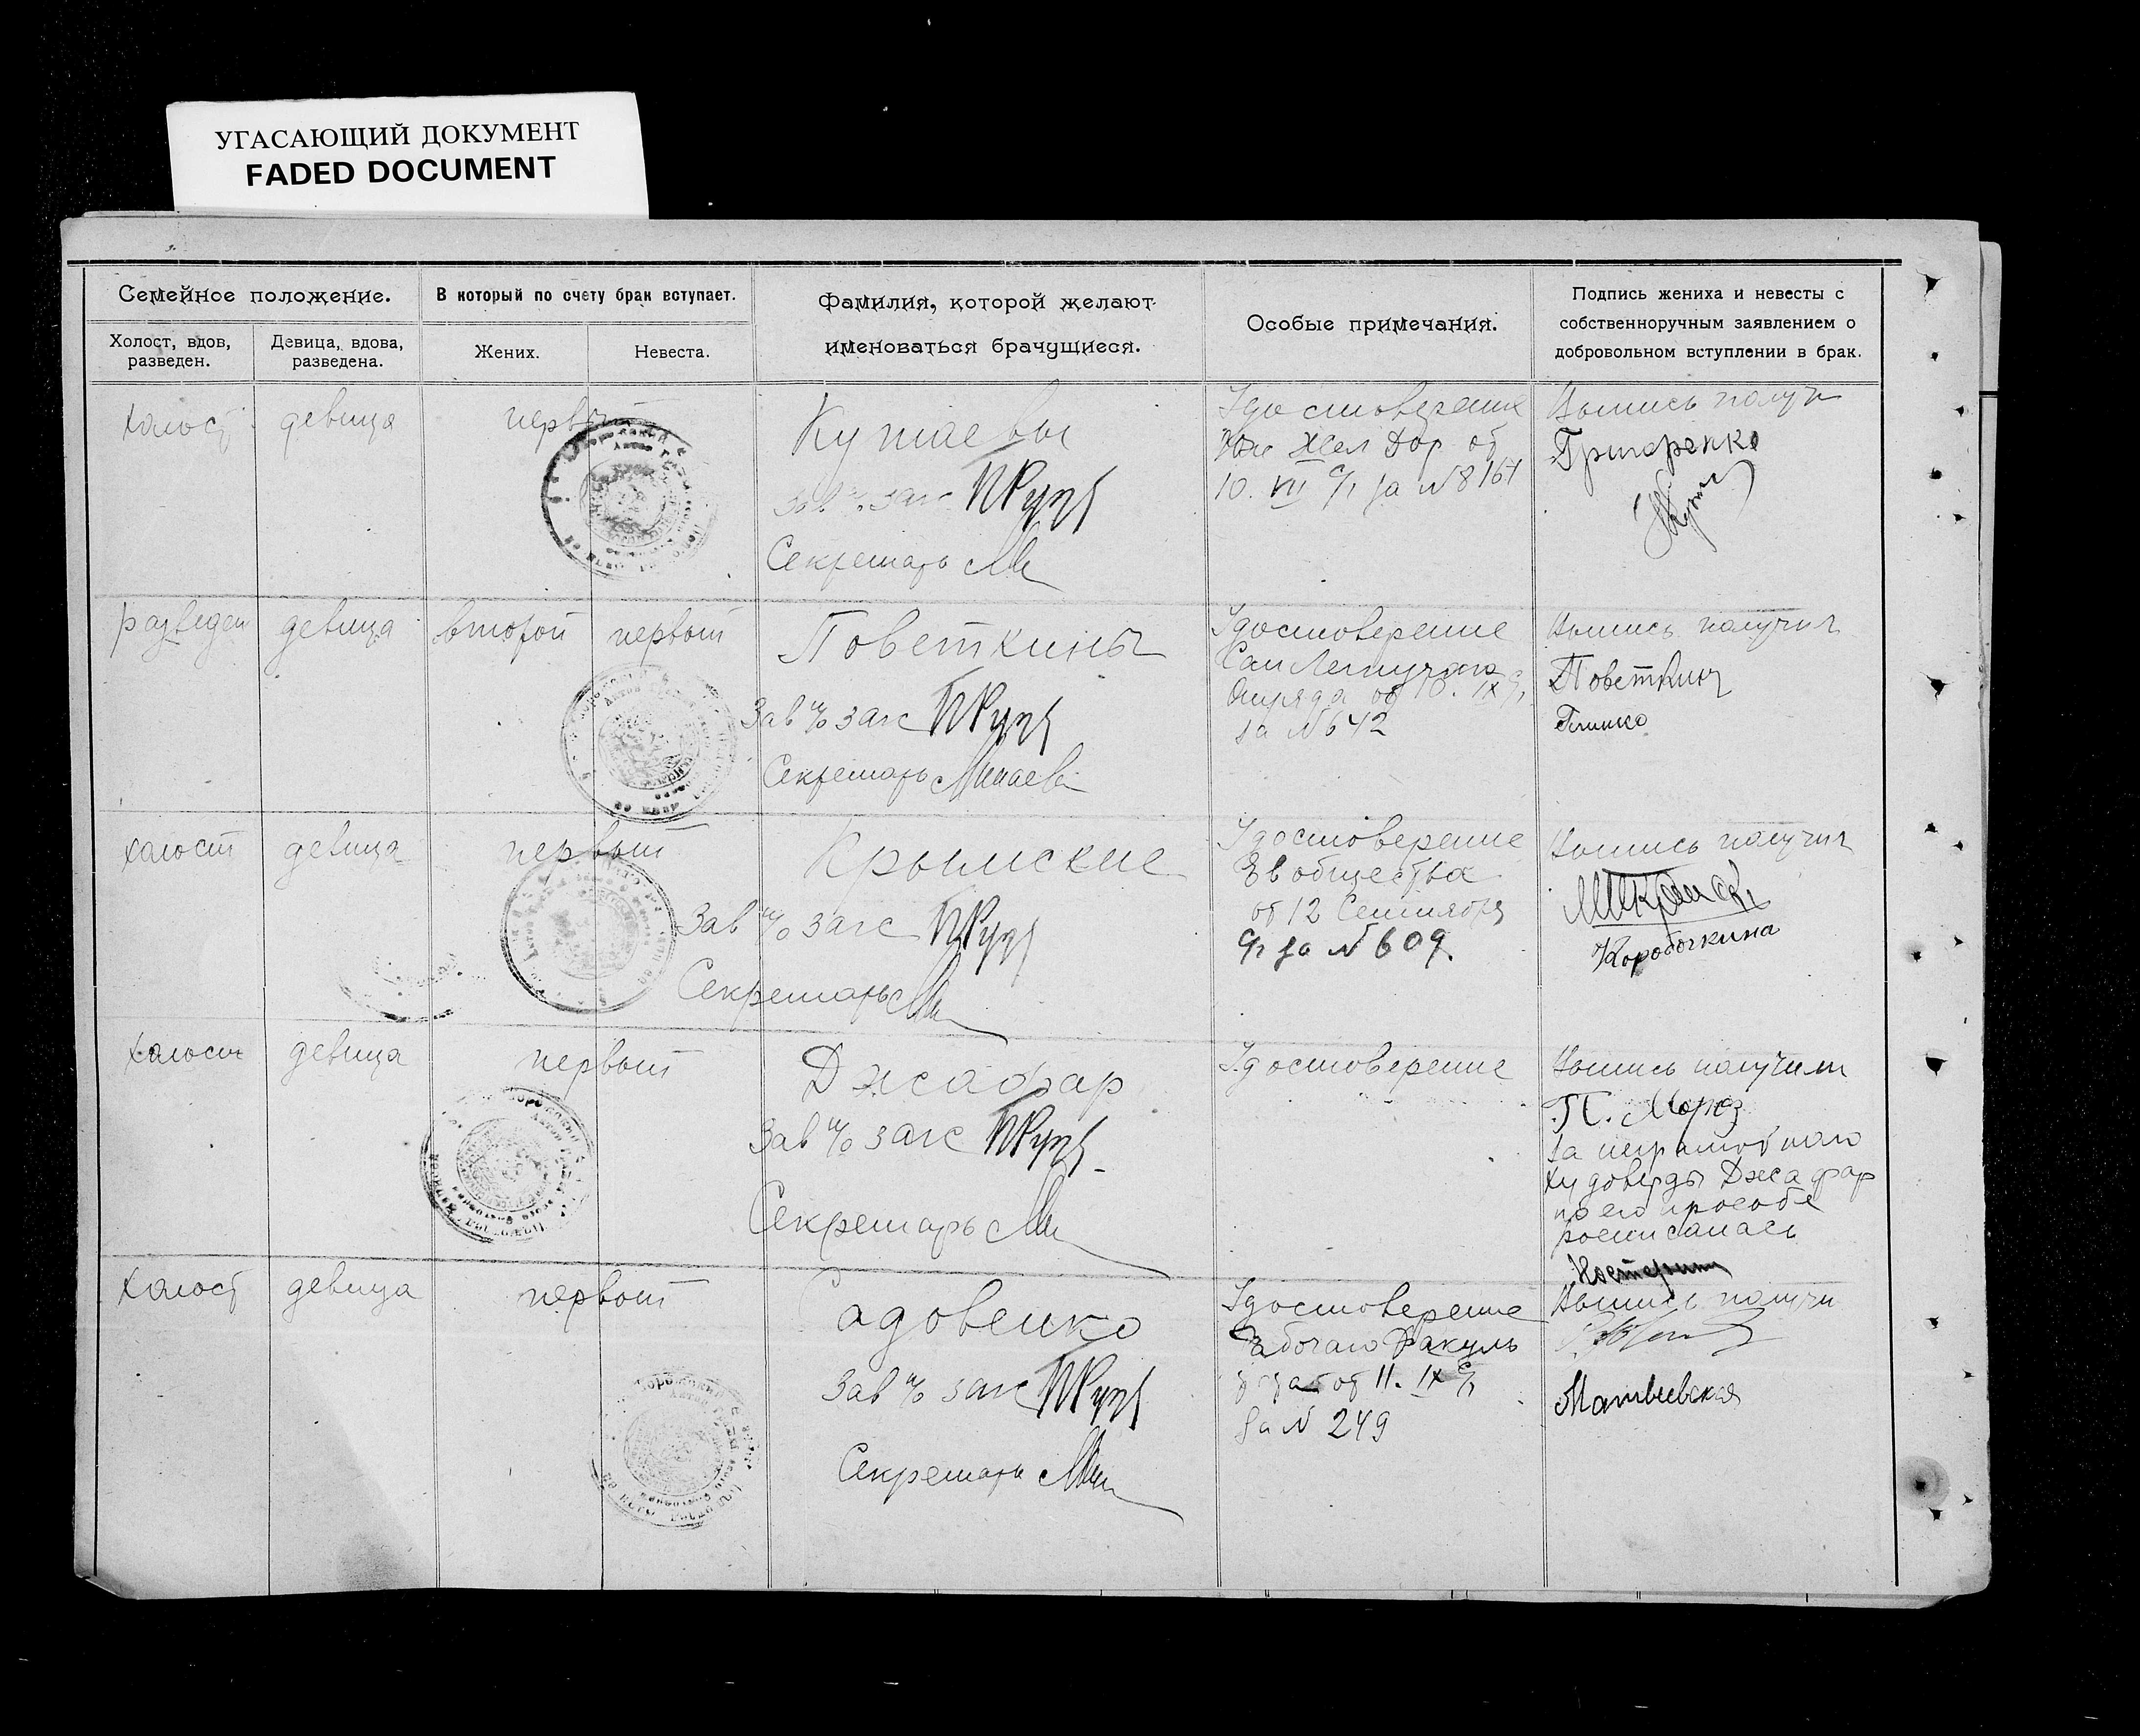 УГАСАЮЩИЙ ДОКУМЕНТ
FADED DOCUMENT
Семейное положение.
В который по счету брак вступает.
Фамилия, которой желают
именоваться брачущиеся.
Особые примечания.
Подпись жениха и невесты с
собственноручным заявлением о
добровольном вступлении в брак.
Холост, вдов,
разведен.
Девица, вдова,
разведена.
Жених.
Невеста.
холост
девица
первый
Кутаевы
Зав п/о загс
Секретарь
Удостоверение
Жел Дор от
10. VII с/г за № 8161
Выпись получ
Григоренко
разведен
девица
второй
первый
Поветкины
Зав п/о загс
Секретарь Минаева
Удостоверение
Сан Летучаго
Отряда от 10. IX с/г
за № 642
Выпись получил
Поветкин
Глинко
холост
девица
первый
Крымские
Зав п/о загс
Секретарь
Удостоверение
Ев общества
от 12 Сентября
с/г за № 609.
Выпись получил
Коробочкина
холост
девица
первый
Джафар
Зав п/о загс
Секретарь
Удостоверение
Выпись получили
П. Мороз
за неграмотнаго
Джафар
по его прособе
росписалась
холост
девица
первый
Садовенко
Зав п/о загс
Секретарь
Удостоверение
Рабочаго Факуль
от 11. IX с/г
за № 249
Выпись получи
Матвиевская